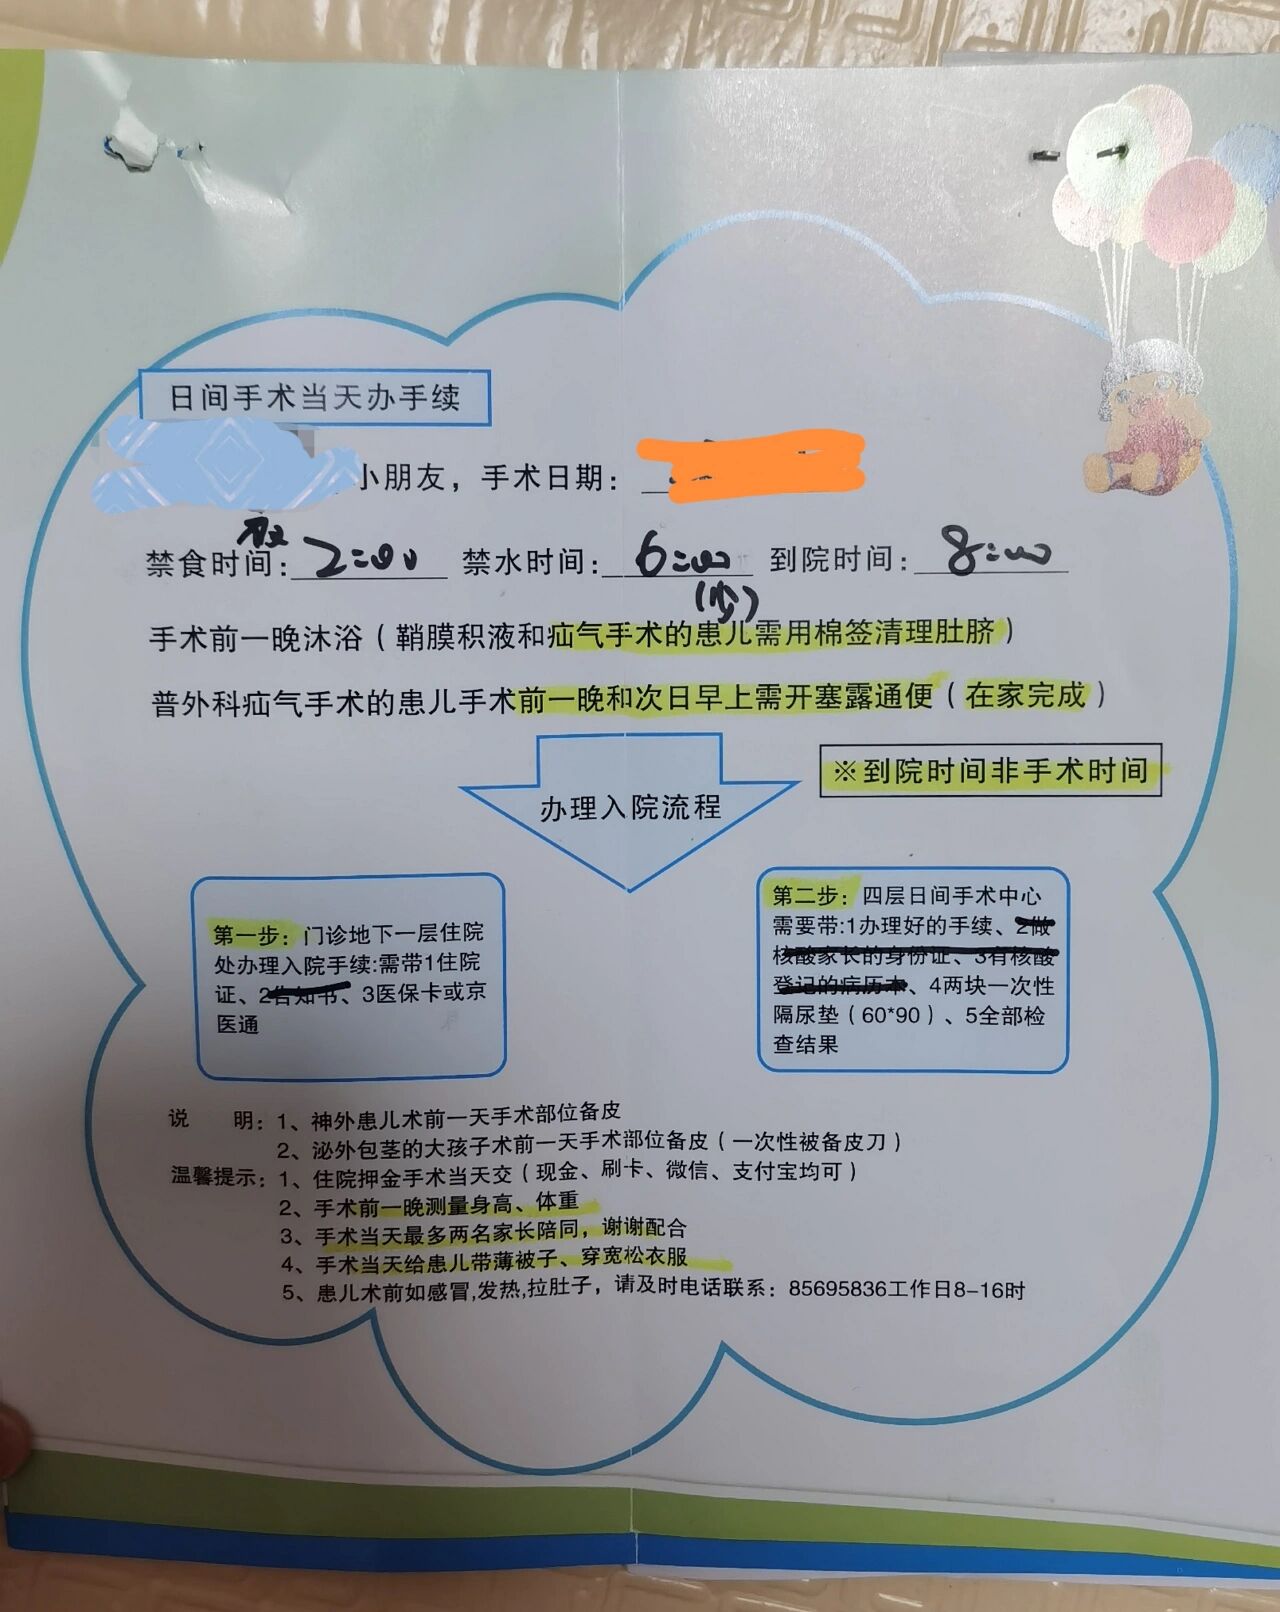 日间手术当天办手续
小朋友，手术日期：
禁食时间：夜2:00 禁水时间：6:00 到院时间：8:00
(少)
手术前一晚沐浴（鞘膜积液和疝气手术的患儿需用棉签清理肚脐）
普外科疝气手术的患儿手术前一晚和次日早上需开塞露通便（在家完成）
※到院时间非手术时间
办理入院流程
第一步：门诊地下一层住院
处办理入院手续:需带1住院
证、2告知书、3医保卡或京
医通
第二步：四层日间手术中心
需要带:1办理好的手续、2做
核酸家长的身份证、3有核酸
登记的病历本、4两块一次性
隔尿垫（60*90）、5全部检
查结果
说 明：1、神外患儿术前一天手术部位备皮
2、泌外包茎的大孩子术前一天手术部位备皮（一次性被备皮刀）
温馨提示：1、住院押金手术当天交（现金、刷卡、微信、支付宝均可）
2、手术前一晚测量身高、体重
3、手术当天最多两名家长陪同，谢谢配合
4、手术当天给患儿带薄被子、穿宽松衣服
5、患儿术前如感冒,发热,拉肚子，请及时电话联系：85695836工作日8-16时